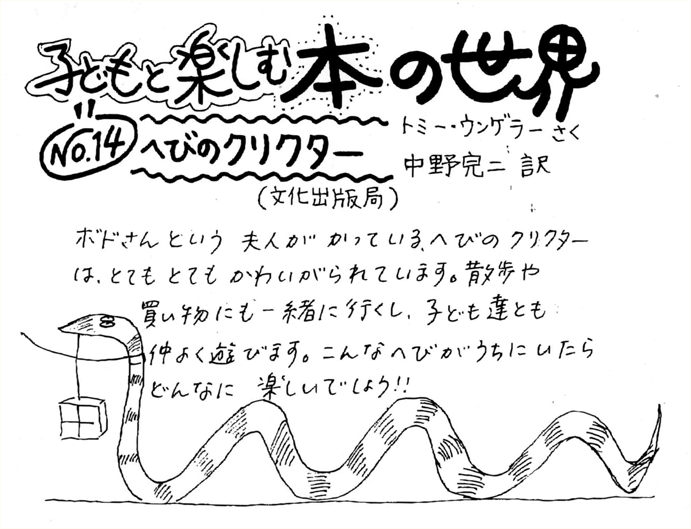 子どもと楽しむ本の世界
No.14
へびのクリクター
トミー・ウンゲラーさく
中野完二 訳
(文化出版局)
ボドさんという 夫人が かっている、へびの クリクター
は、とてもとても かわいがられています。散歩や
買い物にも一緒に行くし、子ども達とも
仲よく遊びます。こんなへびがうちにいたら
どんなに 楽しいでしょう!!